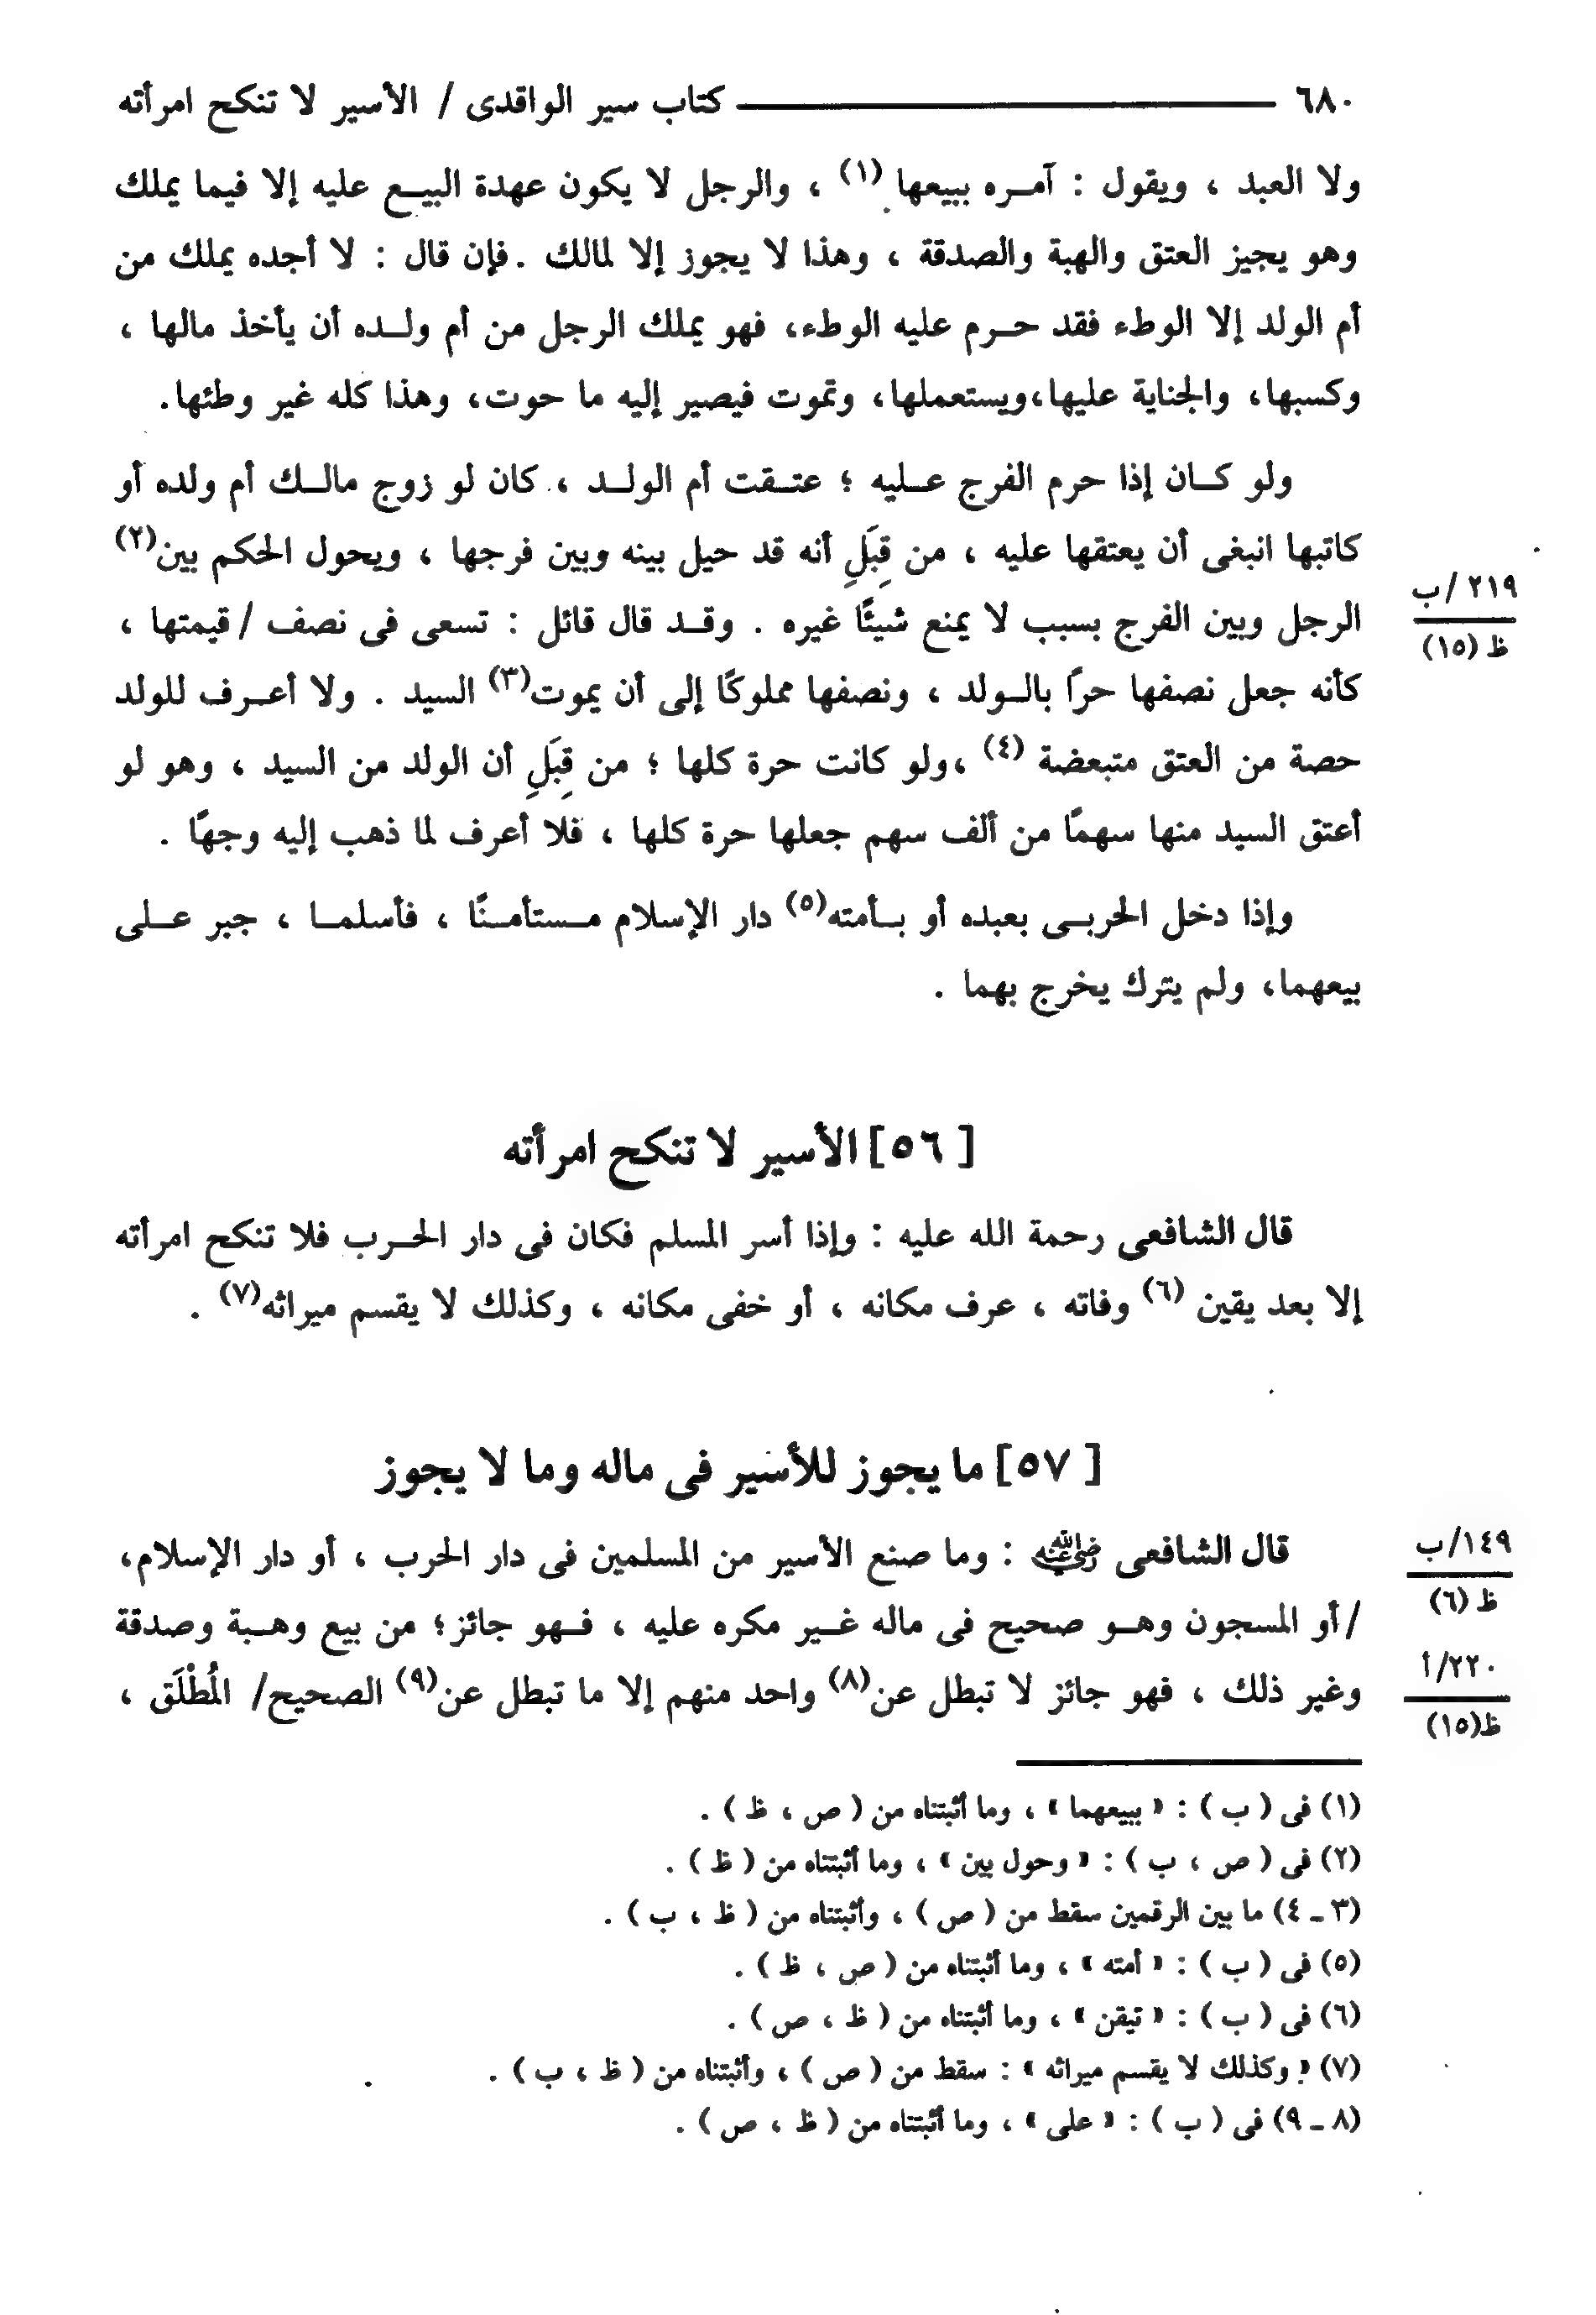 ٦٨٠ ـــــــــــــ كتاب سير الواقدى / الأسير لا تنكح امرأته
ولا العبد ، ويقول : آمـره ببيعها (١) ، والرجل لا يكون عهدة البيـع عليه إلا فيما يملك
وهو يجيز العتق والهبة والصدقة ، وهذا لا يجوز إلا لمالك . فإن قال : لا أجده يملك من
أم الولد إلا الوطء فقد حـرم عليه الوطء، فهو يملك الرجل من أم ولـده أن يأخذ مالها ،
وكسبها، والجناية عليها،ويستعملها، وتموت فيصير إليه ما حوت، وهذا كله غير وطئها.
ولو كـان إذا حرم الفرج عـليه ؛ عتـقت أم الولـد ، كان لو زوج مالـك أم ولده أو
كاتبها انبغى أن يعتقها عليه ، من قِبَلِ أنه قد حيل بينه وبين فرجها ، ويحول الحكم بين(٢)
٢١٩ /ب
الرجل وبين الفرج بسبب لا يمنع شيئًا غيره . وقـد قال قائل : تسعى فى نصف / قيمتها ،
ظ (١٥)
كأنه جعل نصفها حرًا بالـولد ، ونصفها مملوكًا إلى أن يموت(٣) السيد . ولا أعـرف للولد
حصة من العتق متبعضة (٤) ،ولو كانت حرة كلها ؛ من قِبَلِ أن الولد من السيد ، وهو لو
أعتق السيد منها سهمًا من ألف سهم جعلها حرة كلها ، فلا أعرف لما ذهب إليه وجهًا .
وإذا دخل الحربـى بعبده أو بـأمته(٥) دار الإسلام مـستأمـنًا ، فأسلمـا ، جبر عـلى
بيعهما، ولم يترك يخرج بهما .
[ ٥٦] الأسير لا تنكح امرأته
قال الشافعى رحمة الله عليه : وإذا أسر المسلم فكان فى دار الحـرب فلا تنكح امرأته
إلا بعد يقين (٦) وفاته ، عرف مكانه ، أو خفى مكانه ، وكذلك لا يقسم ميراثه(٧) .
[ ٥٧] ما يجوز للأسير فى ماله وما لا يجوز
١٤٩/ب
قال الشافعى رضي الله عنه : وما صنع الأسير من المسلمين فى دار الحرب ، أو دار الإسلام،
ظ (٦)
/ أو المسجون وهـو صحيح فى ماله غـير مكره عليه ، فـهو جائز؛ من بيع وهـبة وصدقة
٢٢٠/أ
وغير ذلك ، فهو جائز لا تبطل عن(٨) واحد منهم إلا ما تبطل عن(٩) الصحيح/ المُطْلَق ،
ظ(١٥)
(١) فى ( ب ) : « ببيعهما » ، وما أثبتناه من ( ص ، ظ ) .
(٢) فى ( ص ، ب ) : « وحول بين » ، وما أثبتناه من ( ظ ) .
(٣ ـ ٤) ما بين الرقمين سقط من ( ص ) ، وأثبتناه من ( ظ ، ب ) .
(٥) فى ( ب ) : « أمته » ، وما أثبتناه من ( ص ، ظ ) .
(٦) فى ( ب ) : « تيقن » ، وما أثبتناه من ( ظ ، ص ) .
(٧) « وكذلك لا يقسم ميراثه » : سقط من ( ص ) ، وأثبتناه من ( ظ ، ب ) .
(٨ ـ ٩) فى ( ب ) : « على » ، وما أثبتناه من ( ظ ، ص ) .